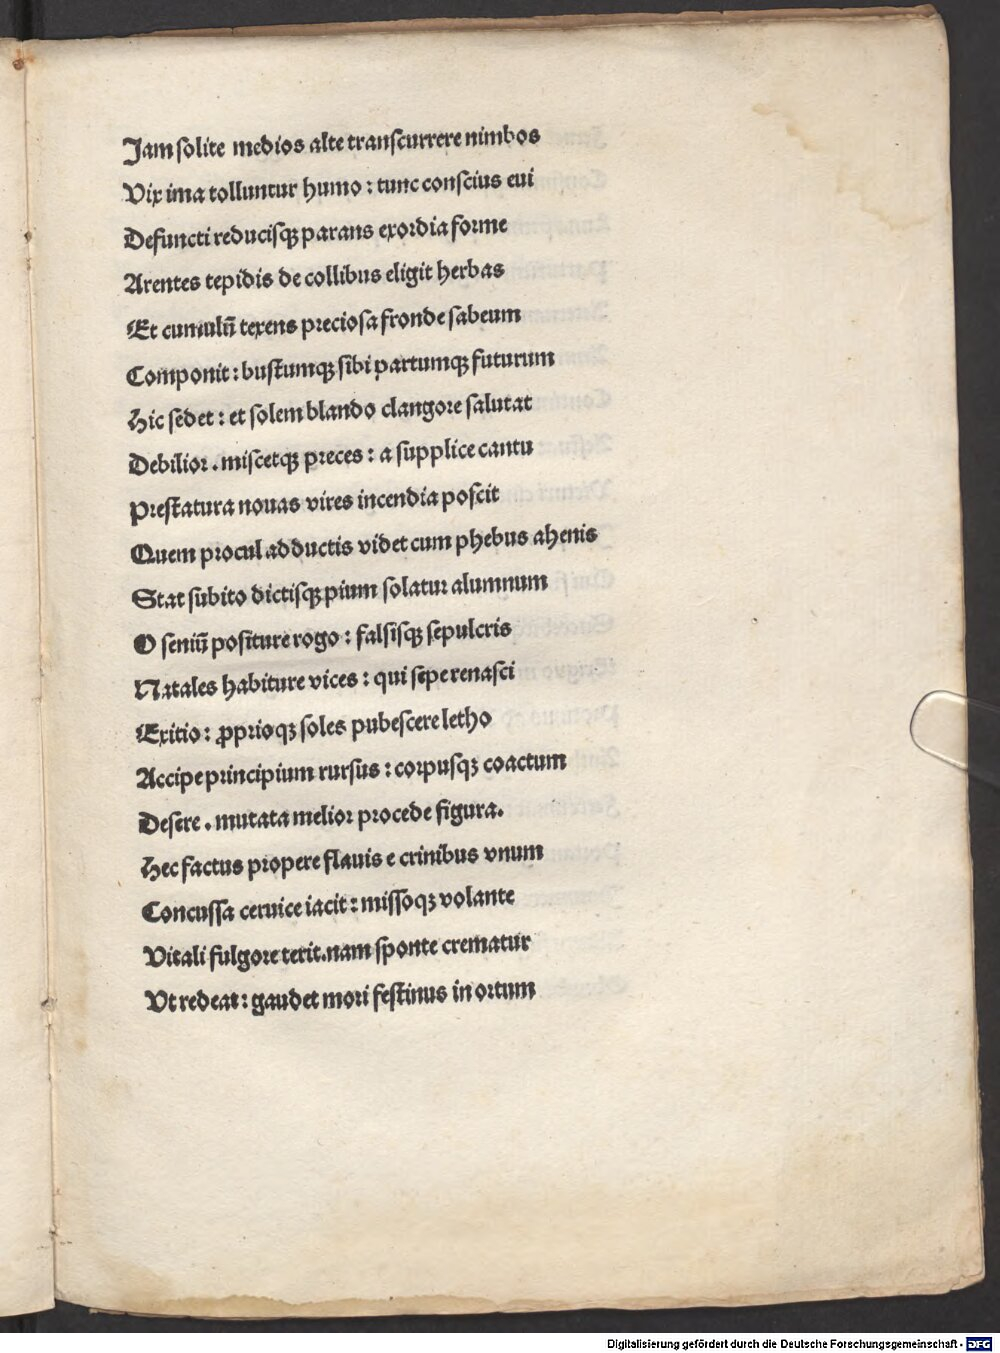 Jam solite medios alte transcurrere nimbos
Vix ima tolluntur humo : tunc conscius eui
Defuncti reducisqꝫ parans exordia forme
Arentes tepidis de collibus eligit herbas
Et cumulū texens preciosa fronde sabeum
Componit : bustumqꝫ sibi partumqꝫ futurum
Hic sedet : et solem blando clangore salutat
Debilior . miscetqꝫ preces : a supplice cantu
Prestatura nouas vires incendia poscit
Quem procul adductis videt cum phebus ahenis
Stat subito dictisqꝫ pium solatur alumnum
O seniū positure rogo : falsisqꝫ sepulcris
Natales habiture vices : qui sepe renasci
Exitio : ꝓprioqꝫ soles pubescere letho
Accipe principium rursus : corpusqꝫ coactum
Desere . mutata melior procede figura.
Hec factus propere flauis e crinibus vnum
Concussa ceruice iacit : missoqꝫ volante
Vitali fulgore terit. nam sponte crematur
Vt redeat : gaudet mori festinus in ortum
Digitalisierung gefördert durch die Deutsche Forschungsgemeinschaft - DFG